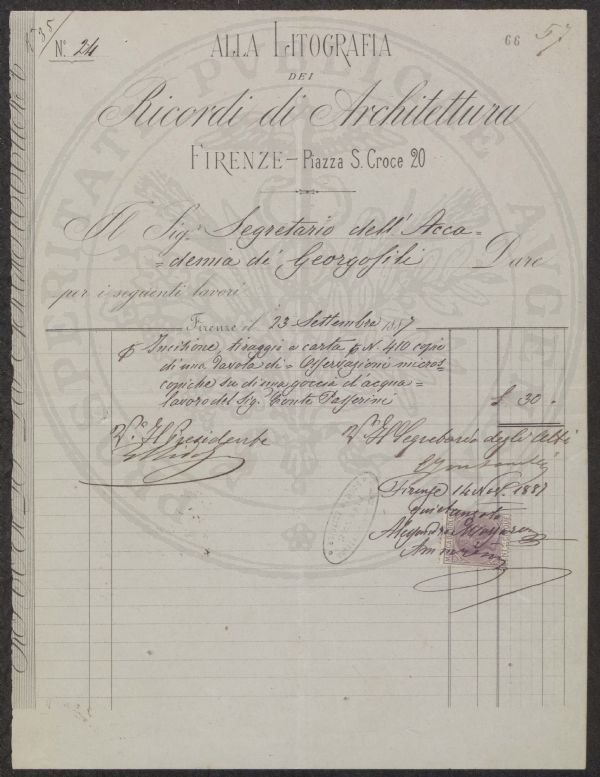 1735
N.º 24
66
57
ALLA LITOGRAFIA
DEI
Ricordi di Architettura
FIRENZE — Piazza S. Croce 20
Il Sig.r Segretario dell'Acca=
=demia di Georgofili Dare
per i seguenti lavori
Firenze il 23 Settembre 1887
p Incisione, tiraggio a carta p N. 410 copie
di una Tavola di = Osservazioni micros=
copiche su di una goccia d'acqua =
lavoro del Sig. Conte Passerini £ 30 =
V.o Il Presidente
V.o Il Segretario degli Atti
Firenze 14 Nov. 1887
quietanzato
Alessandro
PROSPERITATI PUBLICAE AUGENDAE